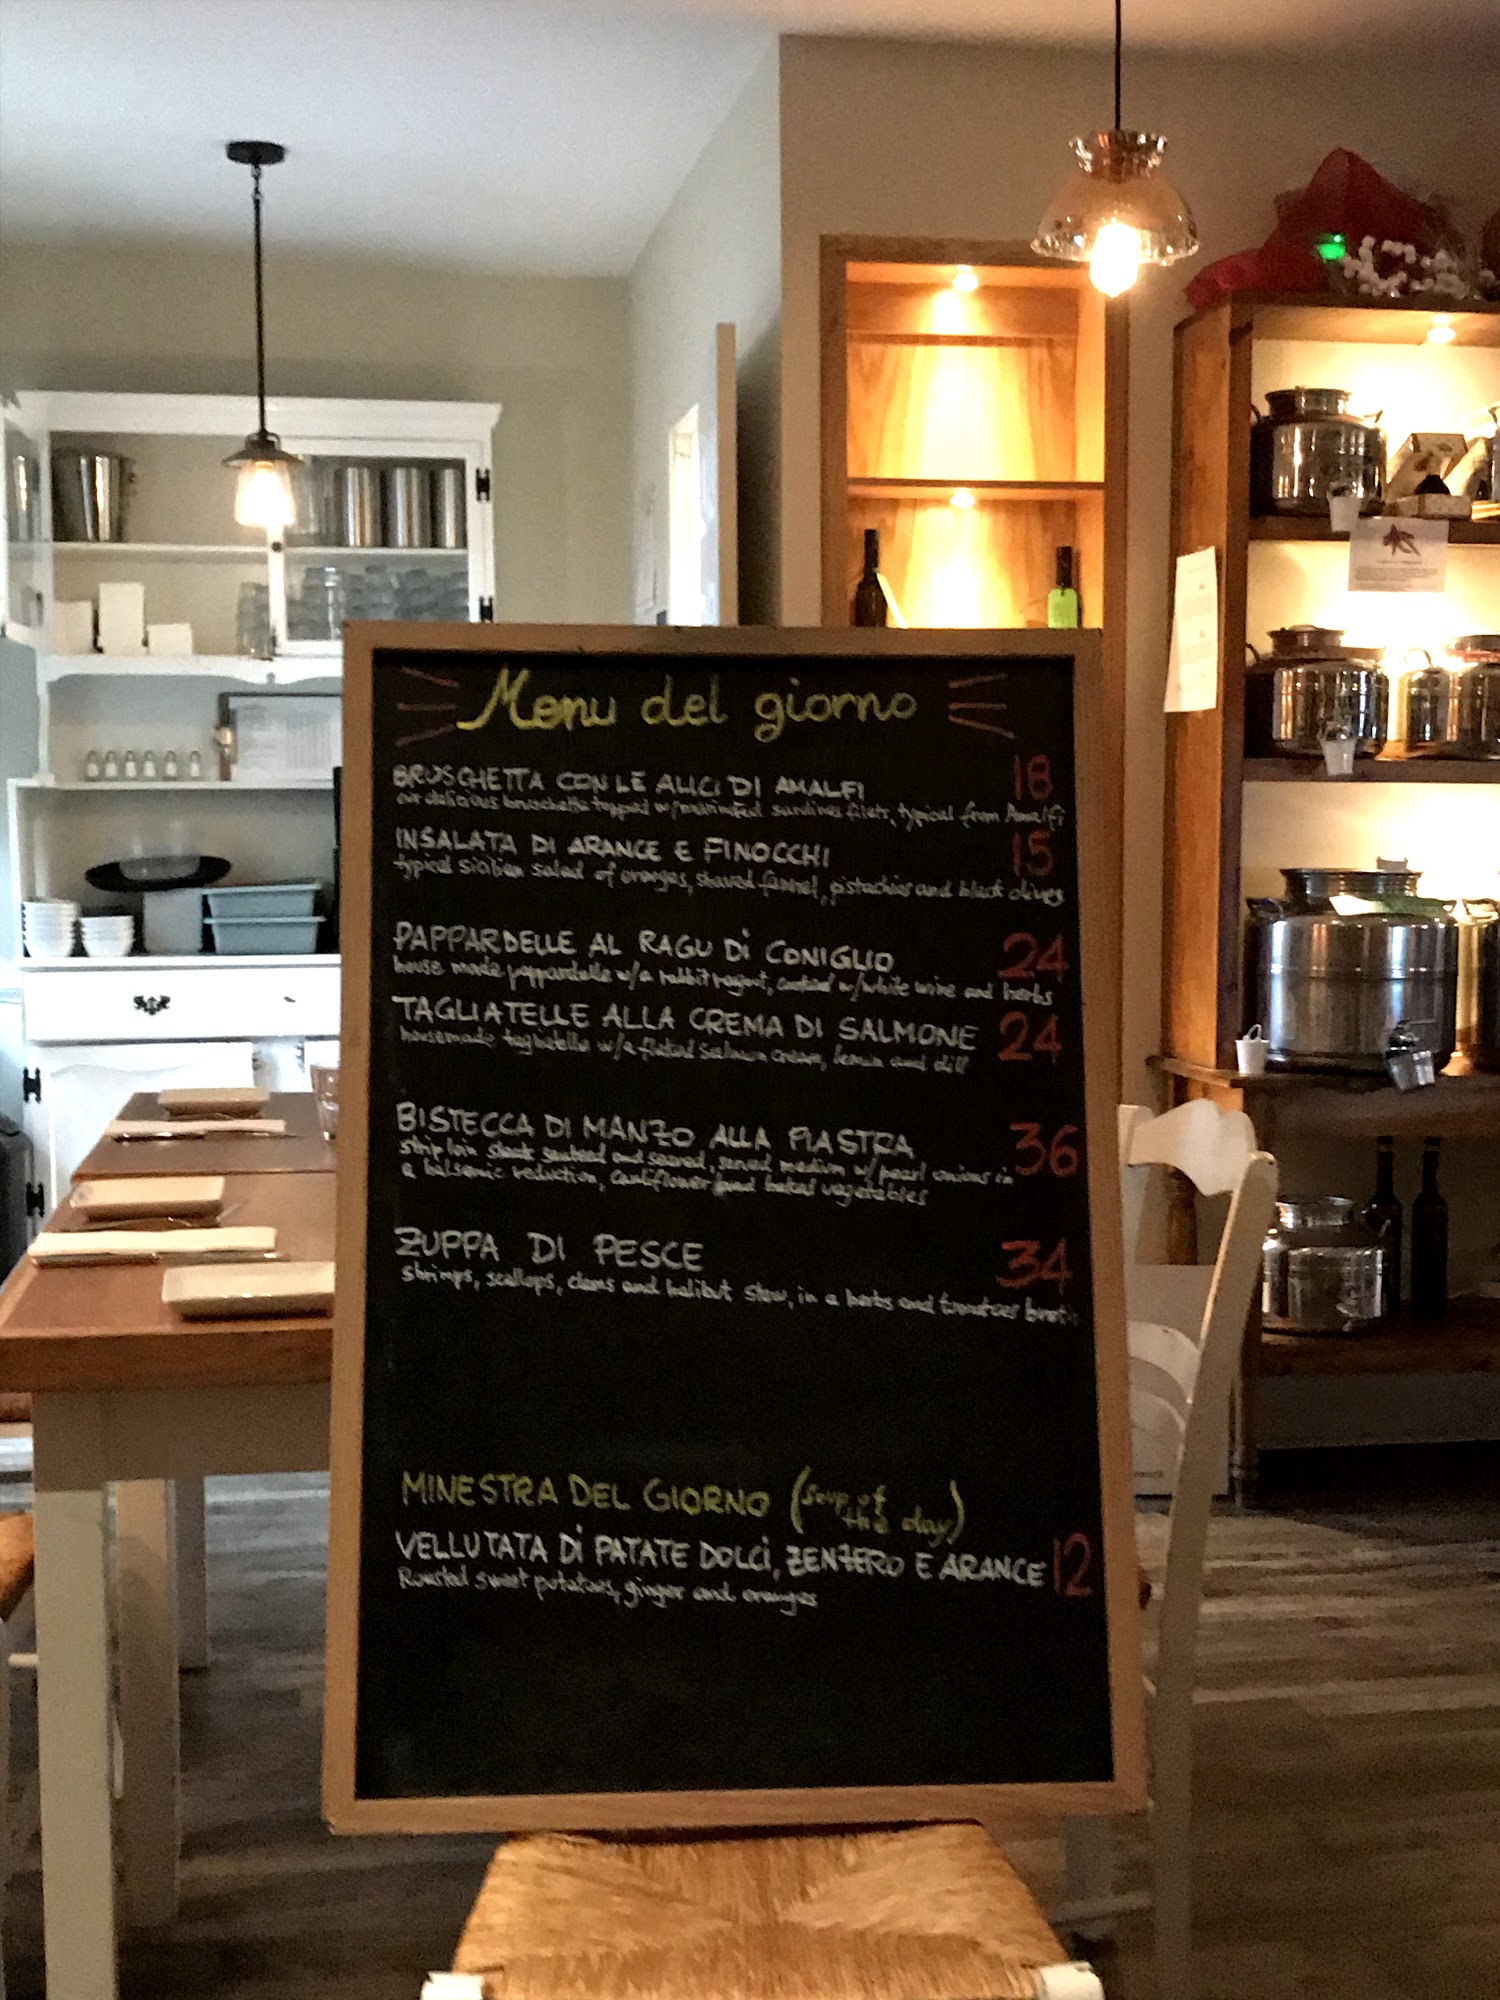 Menu del giorno
BRUSCHETTA CON LE ALICI DI AMALFI 18
our delicious bruschetta topped w/marinated sardines filets, typical from Amalfi
INSALATA DI ARANCE E FINOCCHI 15
typical sicilian salad of oranges, shaved fennel, pistachios and black olives
PAPPARDELLE AL RAGU DI CONIGLIO 24
house made pappardelle w/a rabbit ragout, cooked w/white wine and herbs
TAGLIATELLE ALLA CREMA DI SALMONE 24
housemade tagliatelle w/a salmon cream, lemon and dill
BISTECCA DI MANZO ALLA PIASTRA 36
striploin steak and seared, served medium w/pearl onions in
a balsamic reduction, cauliflower and baked vegetables
ZUPPA DI PESCE 34
shrimps, scallops, clams and halibut stew, in a herbs and tomatoes broth
MINESTRA DEL GIORNO (soup of the day)
VELLUTATA DI PATATE DOLCI, ZENZERO E ARANCE 12
Roasted sweet potatoes, ginger and oranges